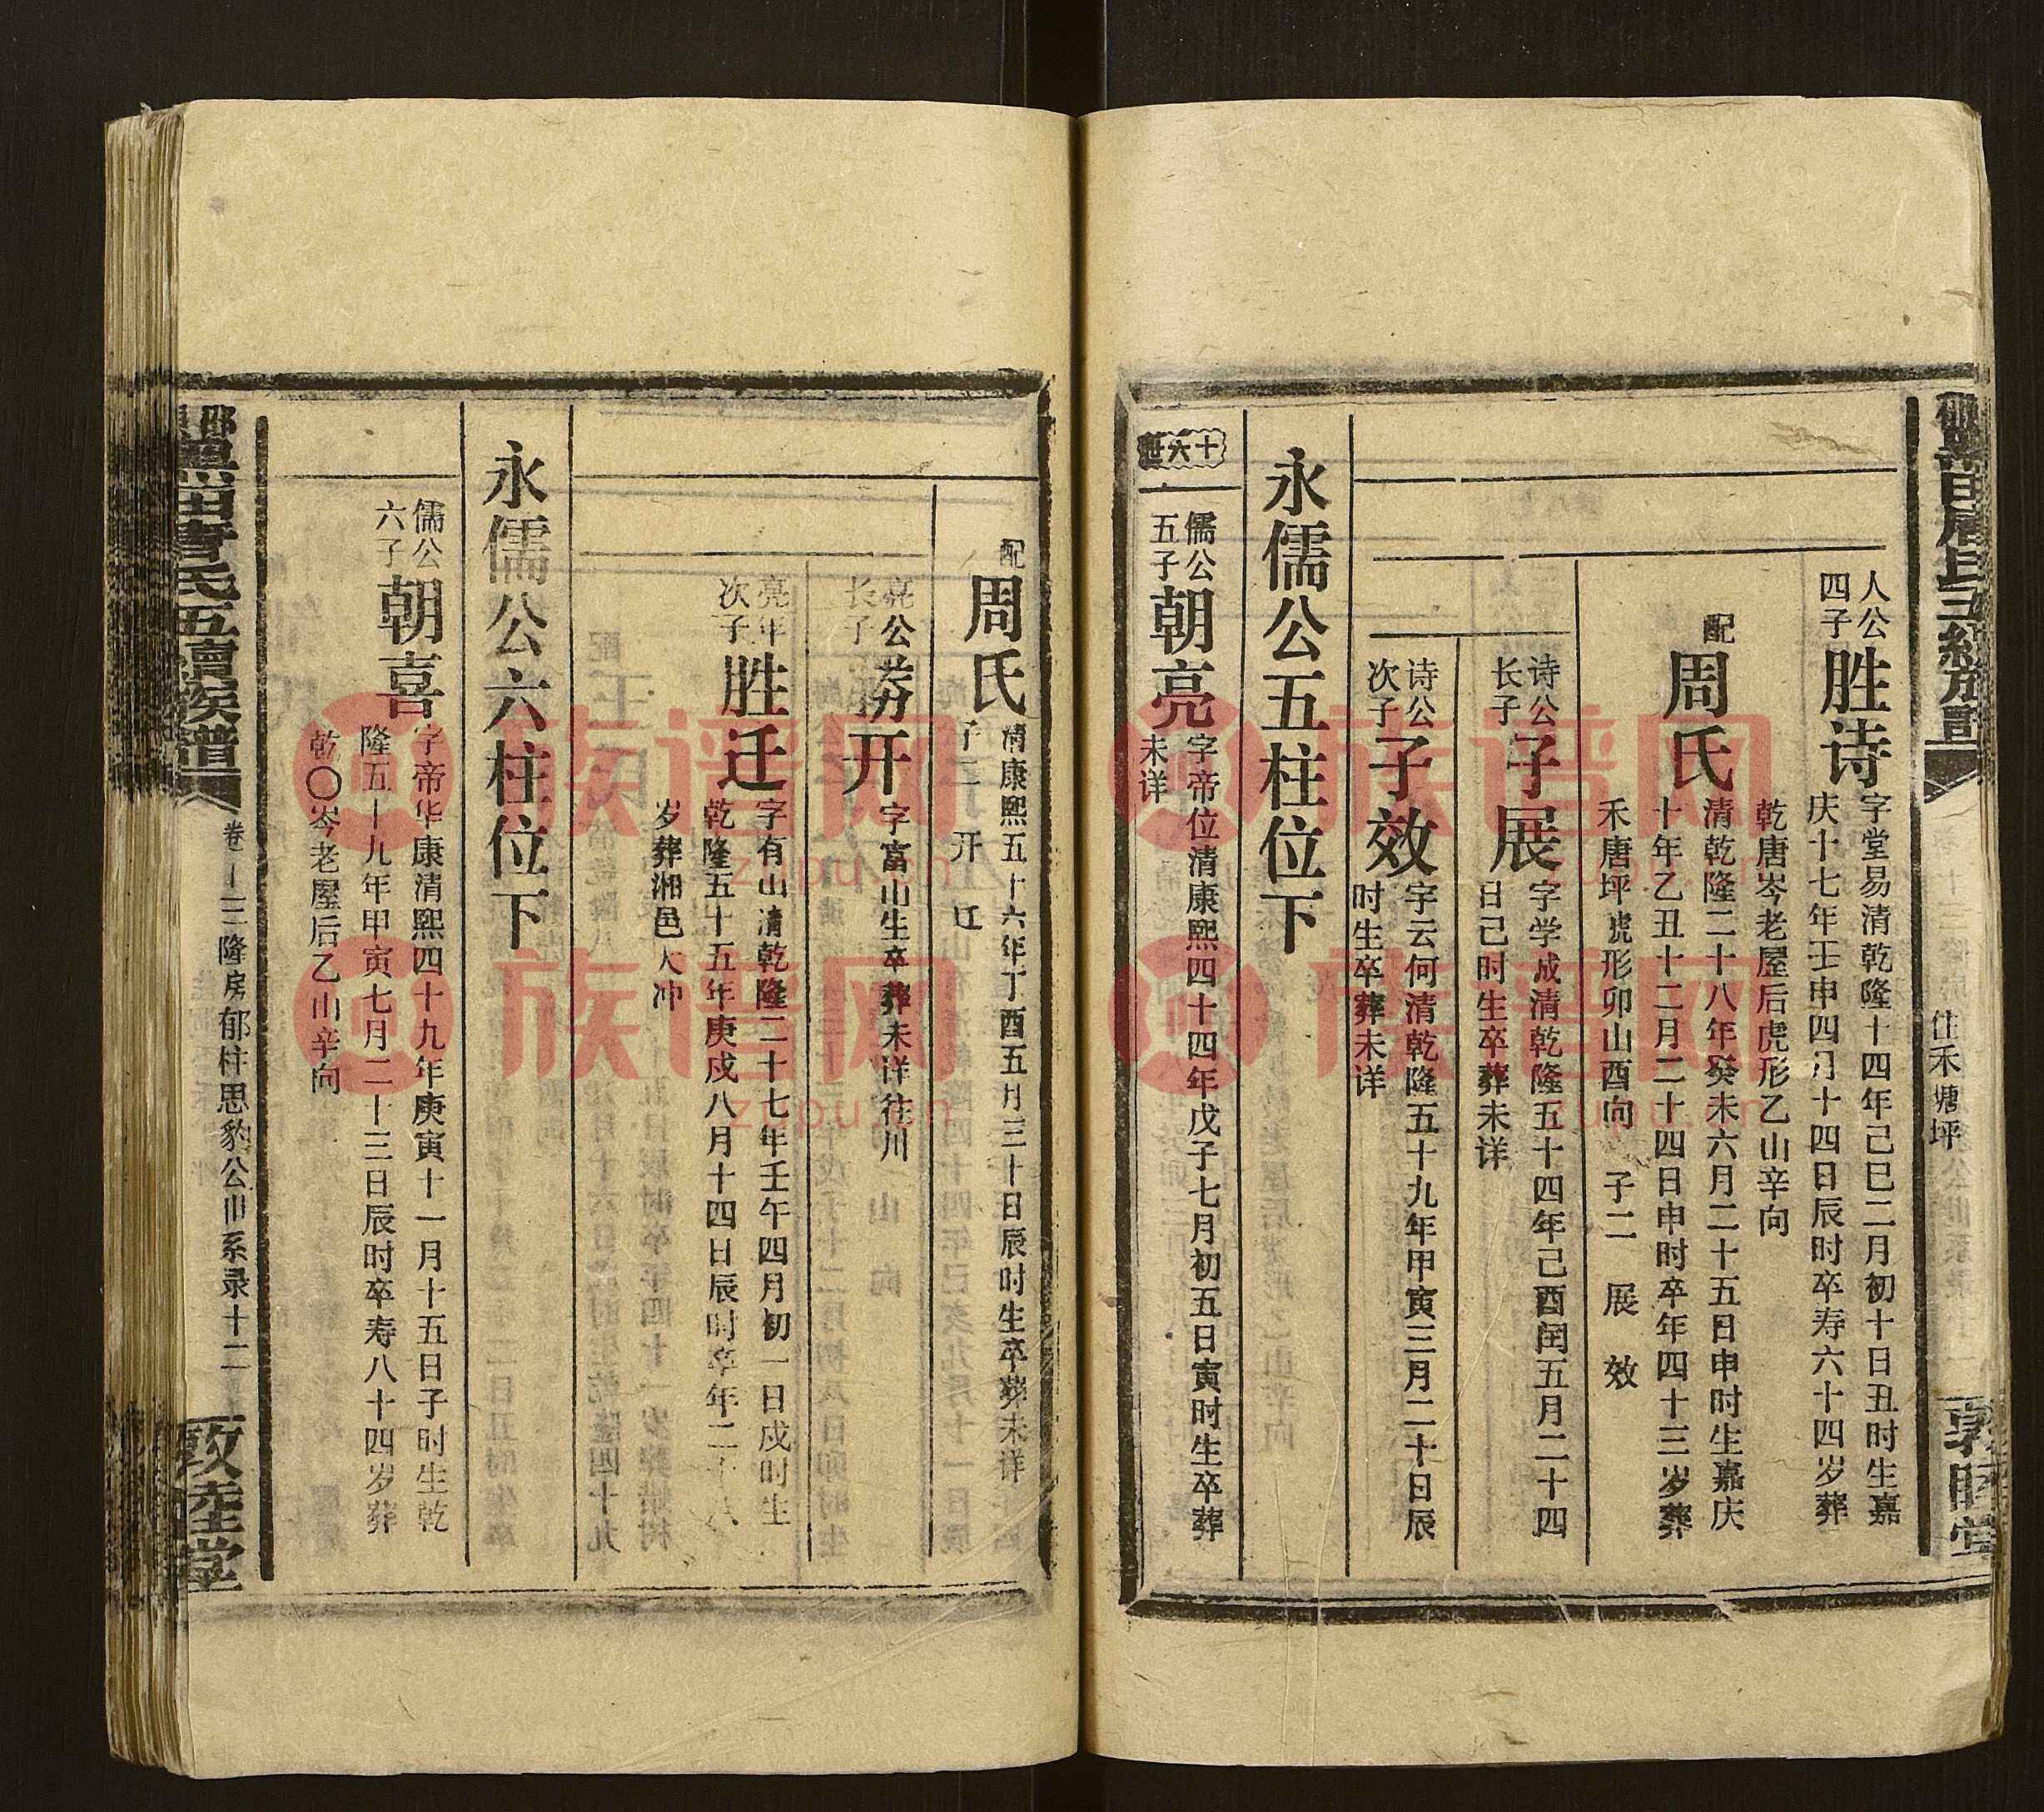 住禾塘坪
人公
四子
胜诗
字堂易清乾隆十四年己巳二月初十日丑时生嘉
庆十七年壬申四月十四日辰时卒寿六十四岁葬
乾唐岑老屋后虎形乙山辛向
配
周氏
清乾隆二十八年癸未六月二十五日申时生嘉庆
十年乙丑十二月二十四日申时卒年四十三岁葬
禾唐坪虎形卯山酉向 子二 展 效
诗公
长子
子展
字学成清乾隆五十四年己酉闰五月二十四
日己时生卒葬未详
诗公
次子
子效
字云何清乾隆五十九年甲寅三月二十日辰
时生卒葬未详
永儒公五柱位下
十六世
儒公
五子
朝亮
字帝位清康熙四十四年戊子七月初五日寅时生卒葬
未详
配
周氏
清康熙五十六年丁酉五月三十日辰时生卒葬未详
子二 开 迁
亮公
长子
胜开
字富山生卒葬未详往川
亮年
次子
胜迁
字有山清乾隆二十七年壬午四月初一日戍时生
乾隆五十五年庚戍八月十四日辰时卒年二十八
岁葬湘邑大冲
永儒公六柱位下
儒公
六子
朝喜
字帝华康清熙四十九年庚寅十一月十五日子时生乾
隆五十九年甲寅七月二十三日辰时卒寿八十四岁葬
乾〇岑老屋后乙山辛向
氏五续族谱
卷十三隆房郁柱思豹公世系录十二
敦睦堂
族谱网
zupu.cn